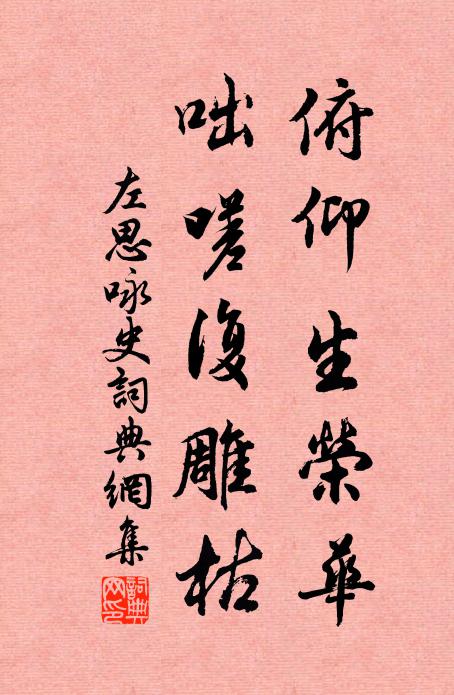 俯仰生榮華
咄嗟復雕枯
左思咏史詞典網集
詞典网印